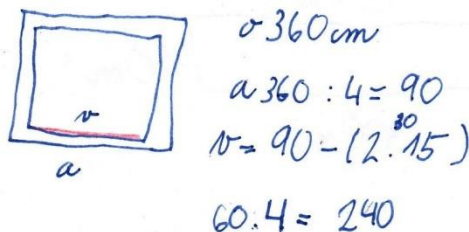 o 360 cm
a 360 : 4 = 90
v
v = 90 - (2 . 15)
30
a
60 . 4 = 240